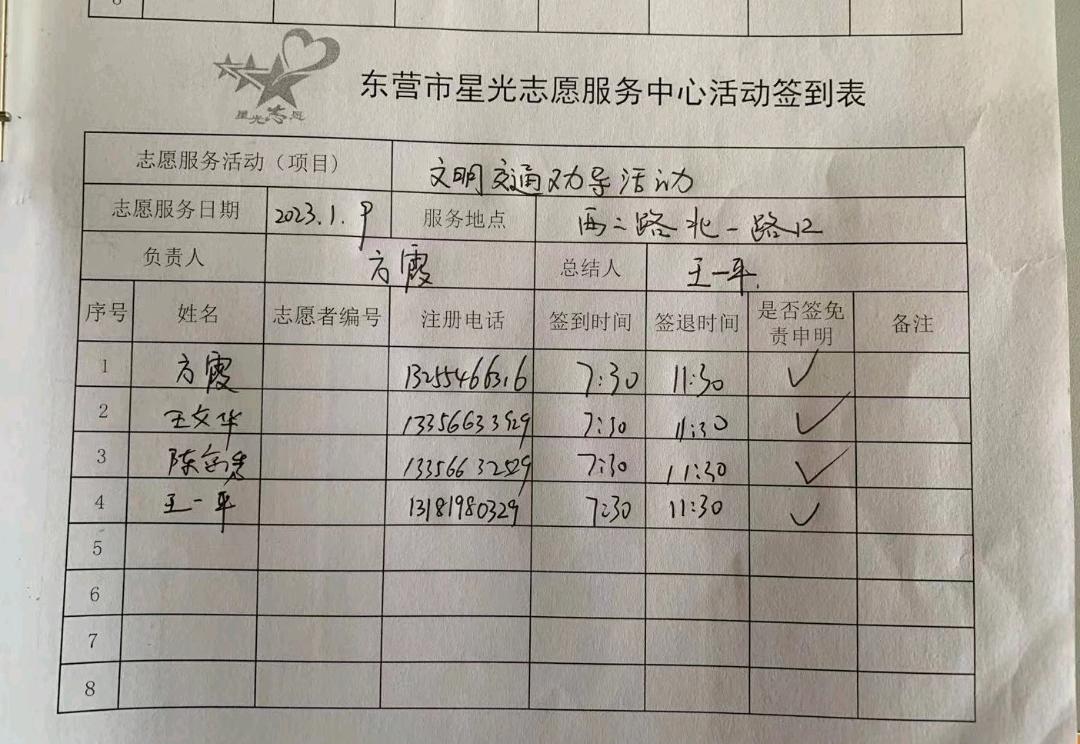 8
星光志愿
东营市星光志愿服务中心活动签到表
志愿服务活动（项目） 文明交通劝导活动
志愿服务日期 2023.1.9 服务地点 西二路北一路口
负责人 方霞 总结人 王一平.
序号 姓名 志愿者编号 注册电话 签到时间 签退时间 是否签免 备注
责申明
1 方霞 13255466316 7:30 11:30 ✓
2 王文华 13356633929 7:30 11:30 ✓
3 陈 13356632529 7:30 11:30 ✓
4 王一平 13181980329 7:30 11:30 ✓
5
6
7
8